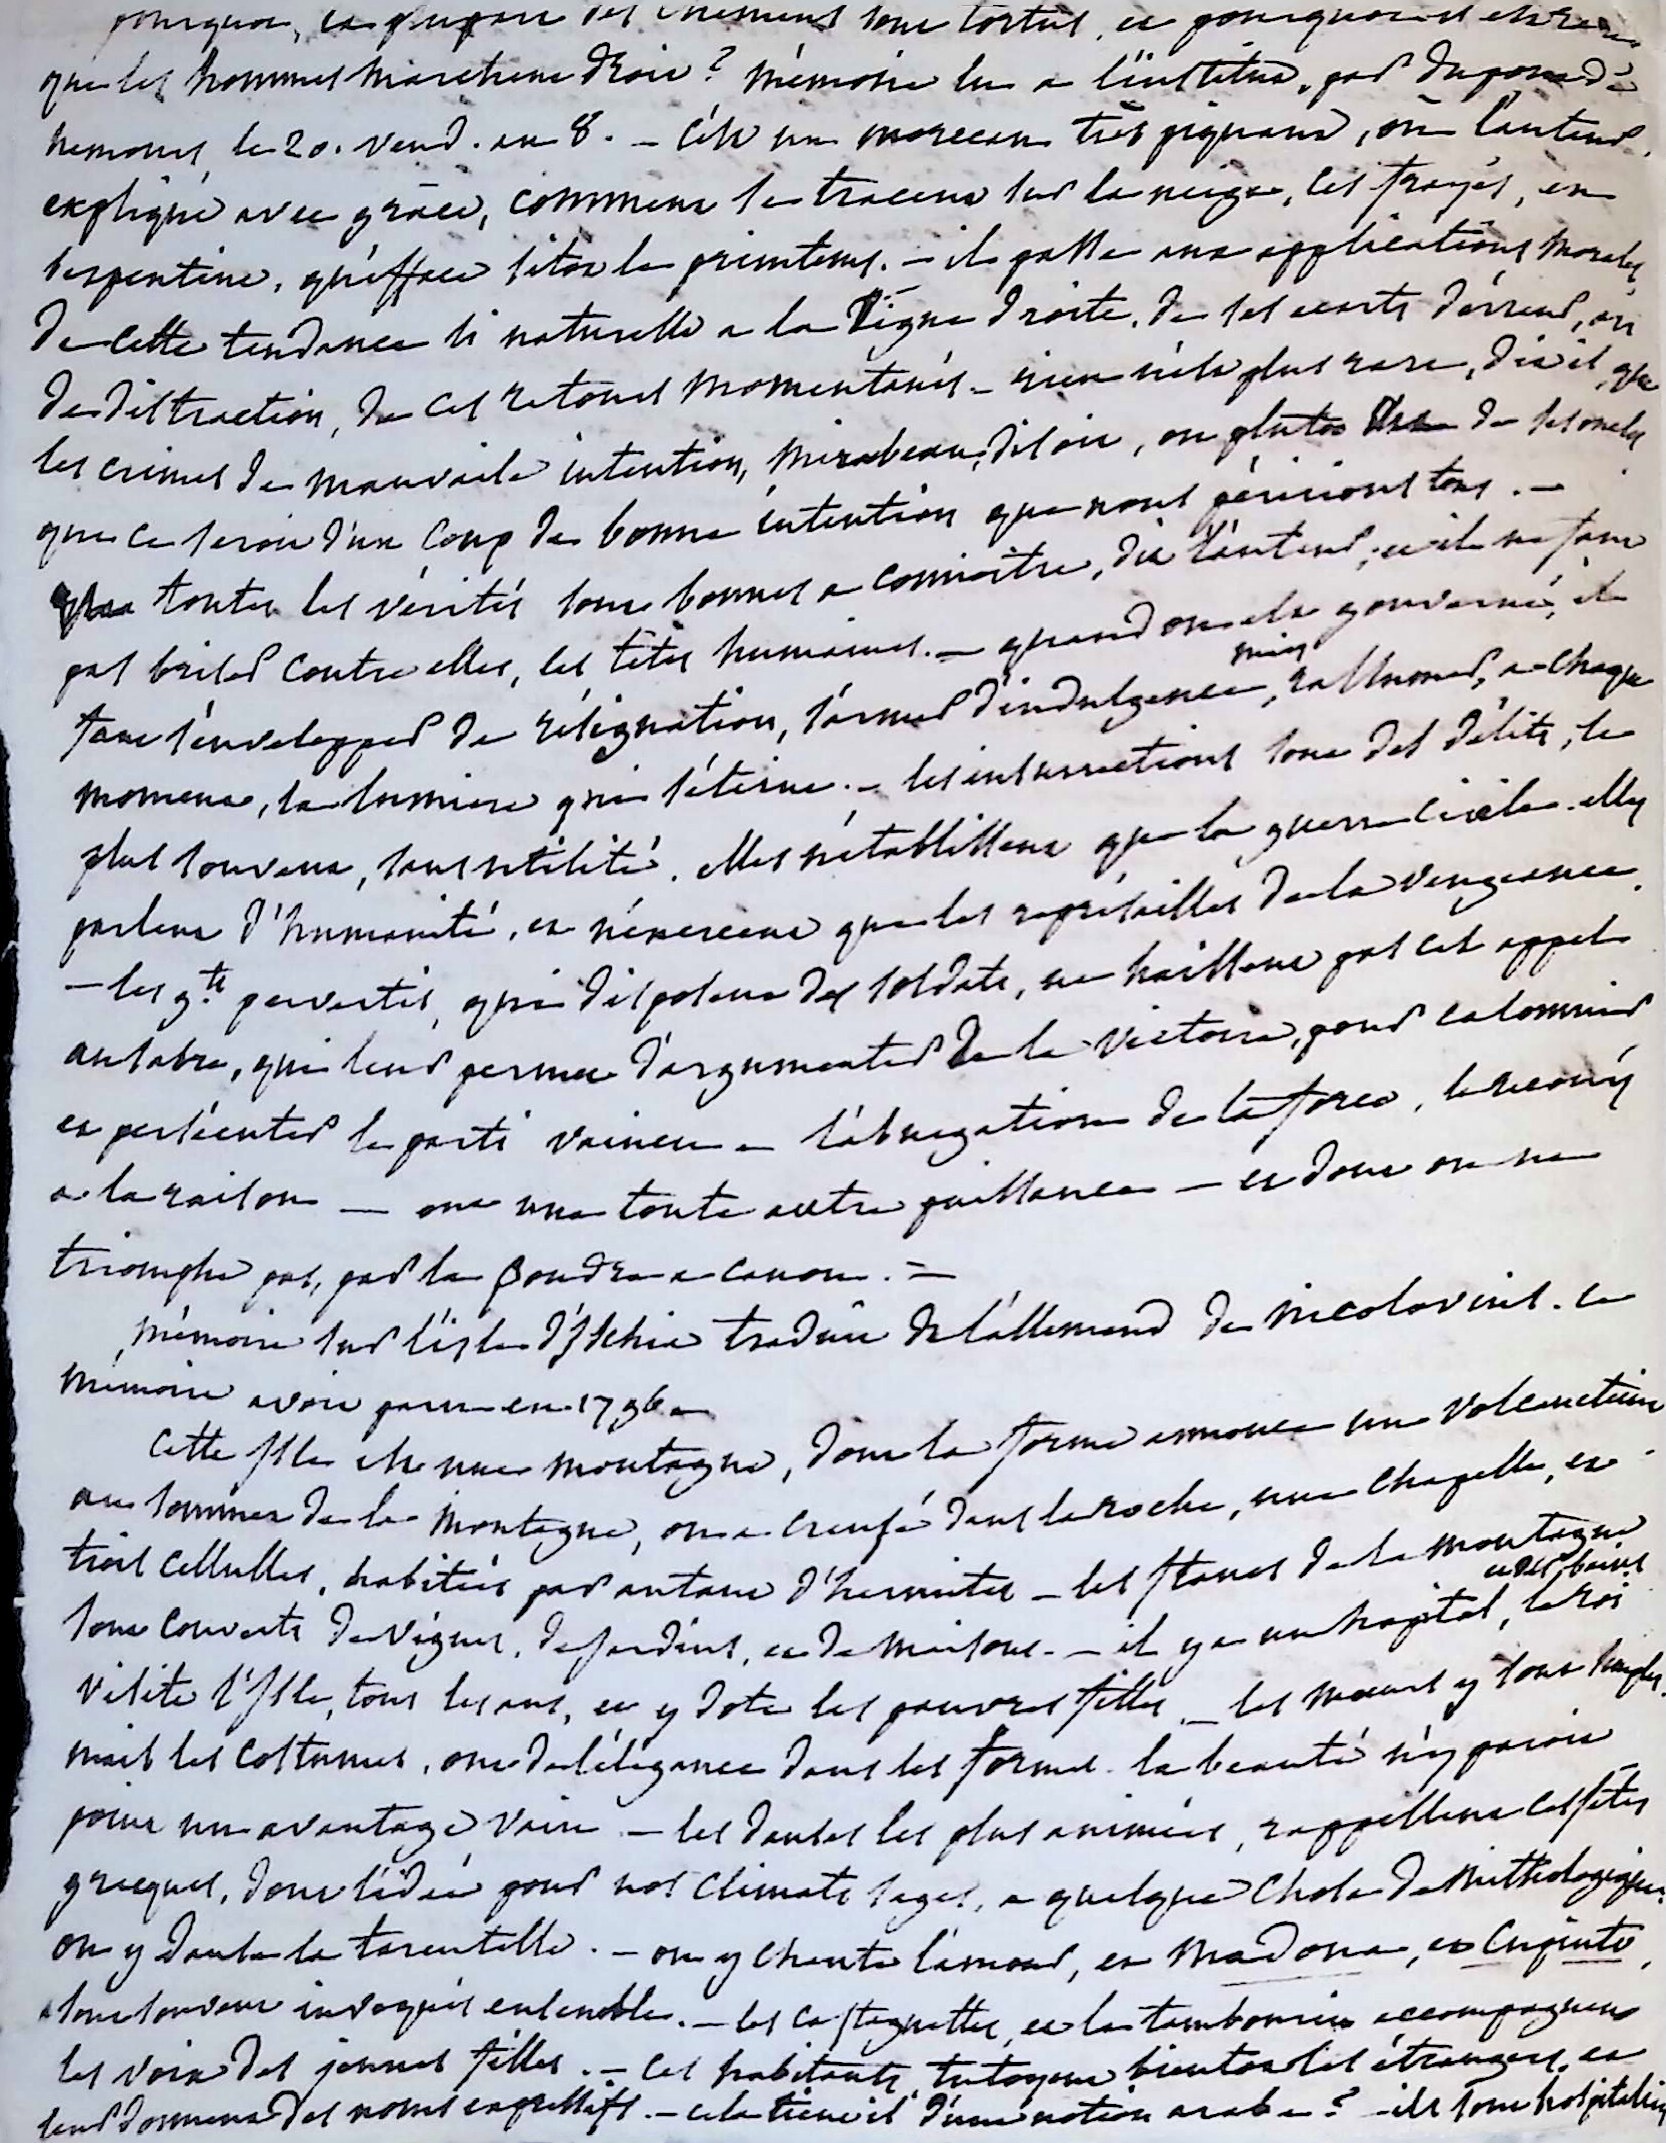 pourquoi, la plupart des chemins sont tortus, et pourquoi est ce rare
que les hommes marchent droit? mémoire lu a l'institut, par dupont de
nemours, le 20. vend. an 8. – c'est un morceau très piquant, où l'auteur
explique avec grâce, comment se tracent sur la neige, les frayés, en
serpentine, qu'efface sitost le printems. – il passe aux applications morales,
de cette tendance si naturelle a la ligne droite, de ses ecarts d'erreur, ou
de distraction, de ces retours momentanés – rien n'est plus rare, dit il, que
les crimes de mauvaise intention, mirabeau disoit, ou plutost de ses oncles
que ce seroit d'un coup de bonne intention que nous péririons tous. –
toutes les vérités sont bonnes a connoitre, dit l'auteur, et il ne faut
pas briser contre elles, les têtes humaines. – quand on est gouverné, il
faut s'envelopper de résignation, s'armer d'indulgence, puis rallumer, a chaque
moment, la lumiere qui s'éteint. – les insurrections sont des délits, le
plus souvent, sans utilité. elles n'établissent que la guerre civile. elles
parlent d'humanité, et n'exercent que les représailles de la vengeance.
– les g.ts pervertis, qui disposent des soldats, ne haissent pas cet appel
au sabre, qui leur permet d'argumenter de la victoire, pour calomnier
et persécuter le parti vaincu – l'abnégation de la force, le recours
a la raison – ont une toute autre puissance – et dont on ne
triomphe pas, par la poudre a canon. –
mémoire sur l'isle d'Ischia traduit de l'allemand de nicolovius. ce
mémoire avoit paru en 1796 –
Cette isle est une montagne, dont la forme annonce un volcan éteint
au sommet de la montagne, on a creusé dans la roche, une chapelle, et
trois cellulles, habitées par autant d'hermites – les flancs de la montagne
sont couverts de vignes, de jardins, et de maisons. – il y a un hopital, et des bains le roi
visite l'isle, tous les ans, et y dote les pauvres filles – les moeurs y sont simples.
mais les costumes, ont de l'élégance dans les formes. la beauté n'y paroit
point un avantage vain – les danses les plus animées, rappellent ces fêtes
grecques, dont l'idée pour nos climats sages, a quelque chose de mithologique.
on y danse la tarentelle. – on y chante l'amour, et madona, et Cupinto,
sont souvent invoqués ensemble. – les castagnettes, et le tambourin accompagnent
les voix des jeunes filles. – ces habitants tutoyent bientost les étrangers, et
leur donnent des noms expressifs. – cela tient il d'une notion arabe? – ils sont hospitaliers